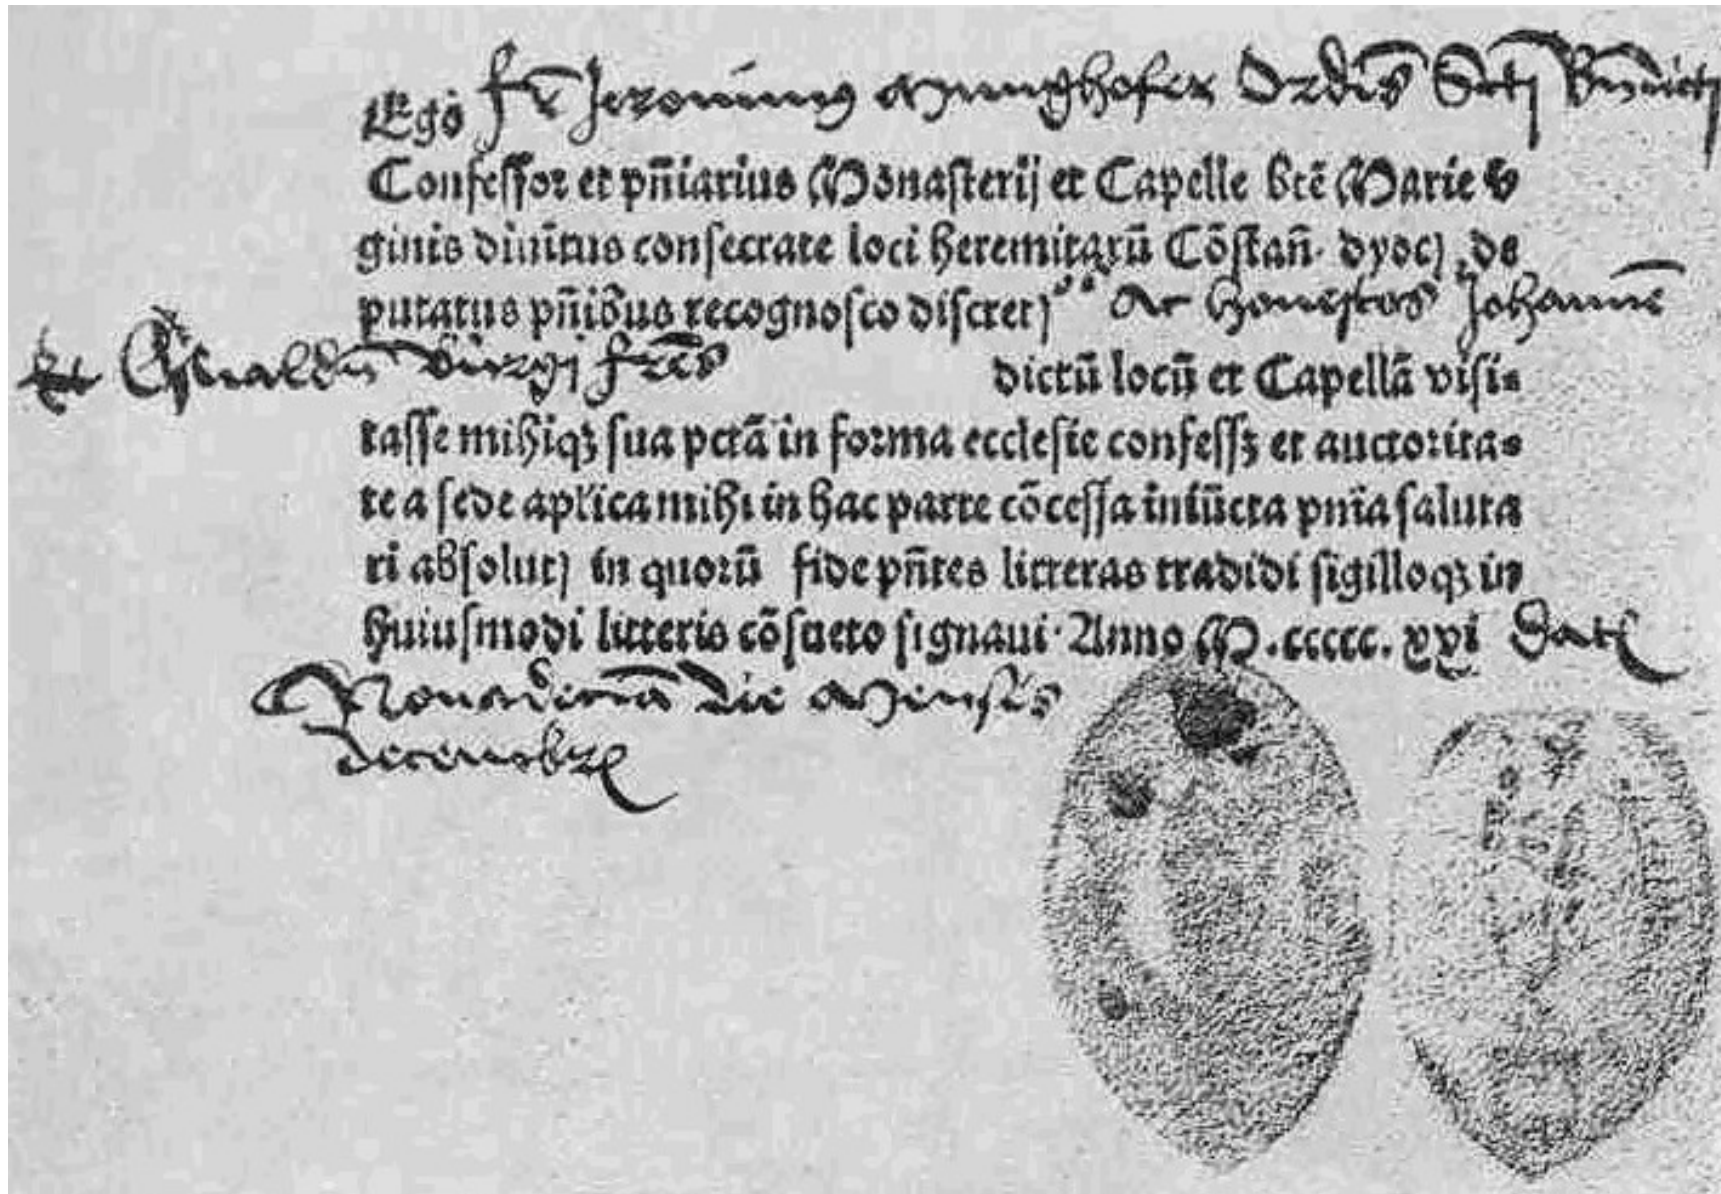 Ego fr̄ Jeronimus Munghofer Ordīs Scti Bn̄dicti
Confessor et pn̄iarius Monasterij et Capelle btē Marie v
ginis diuītus consecrate loci heremitarū Cōstan̄. dyocꝭ de
putatus pn̄ibus recognosco discretꝭos Ac honestos Johannē
et Oswaldū bürgi frēs dictū locū et Capellā visi-
tasse mihiqꝫ sua pctā in forma ecclesie confessꝫ et auctorita-
te a sede aplica mihi in hac parte cōcessa iniūcta pnīa saluta
ri absolutꝭ in quorū fide pn̄tes litteras tradidi sigilloqꝫ in
huiusmodi litteris cōsueto signaui. Anno M.ccccc.xxi Datꝭ
die Mensis
decembrꝭ